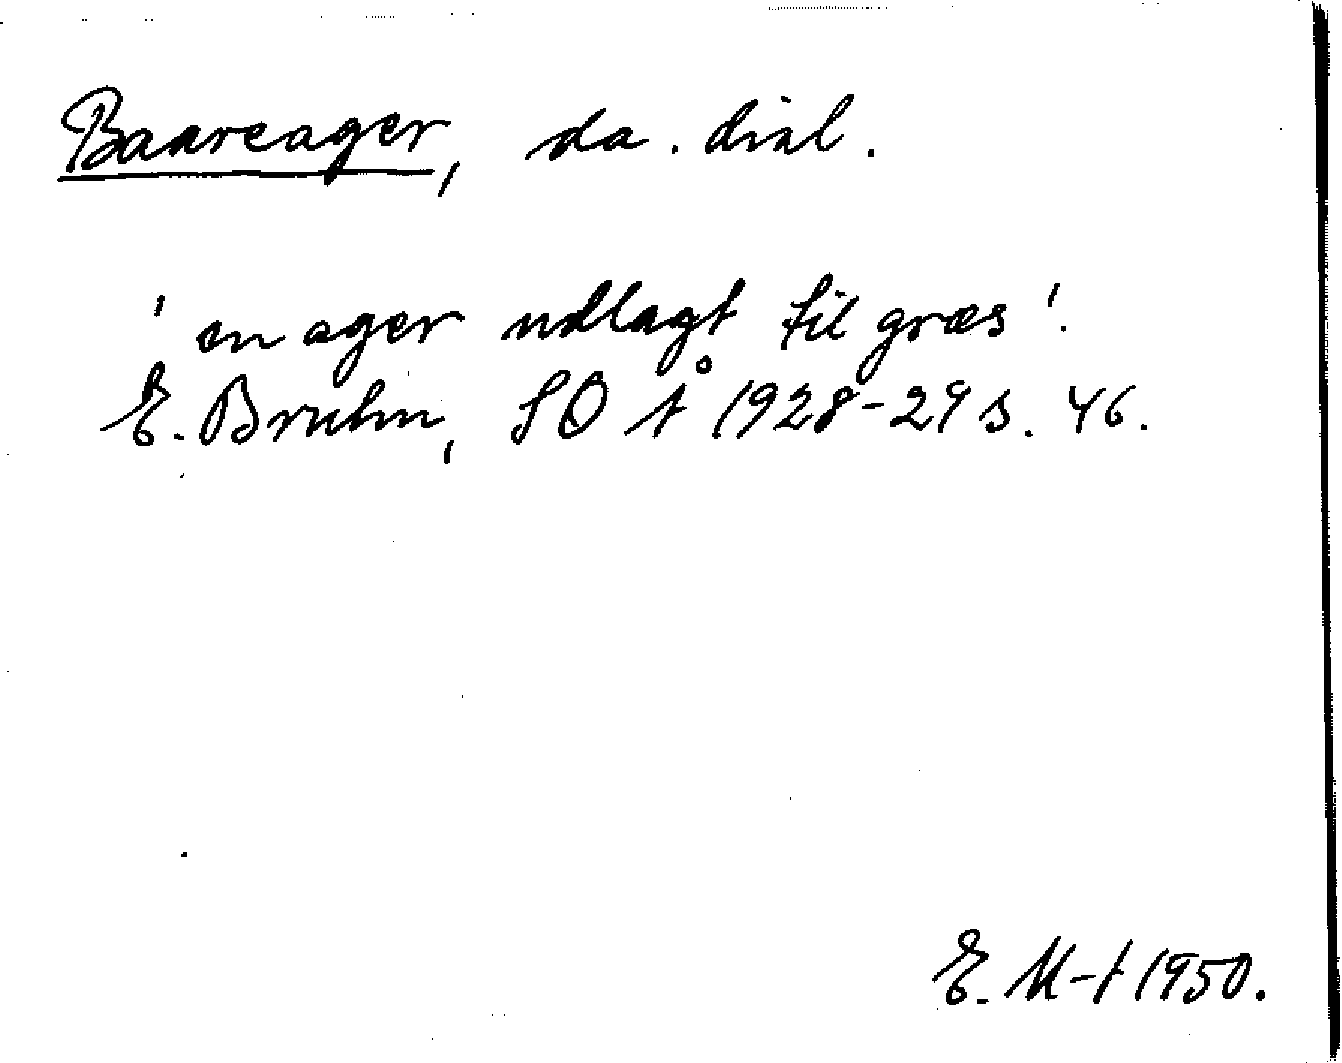 Baareager, da. dial.
'en ager udlagt til græs'.
E. Bruhn, SOÅ 1928-29 s. 46.
E. M-t 1950.